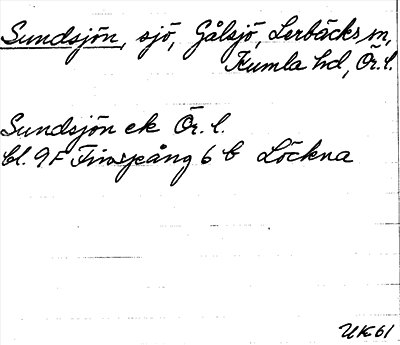 Sundsjön, sjö, Gålsjö, Lerbäcks sn,
Kumla hd, Ör. l.
Sundsjön ek Ör. l.
bl. 9F Finspång 6 b Löckna
UK61